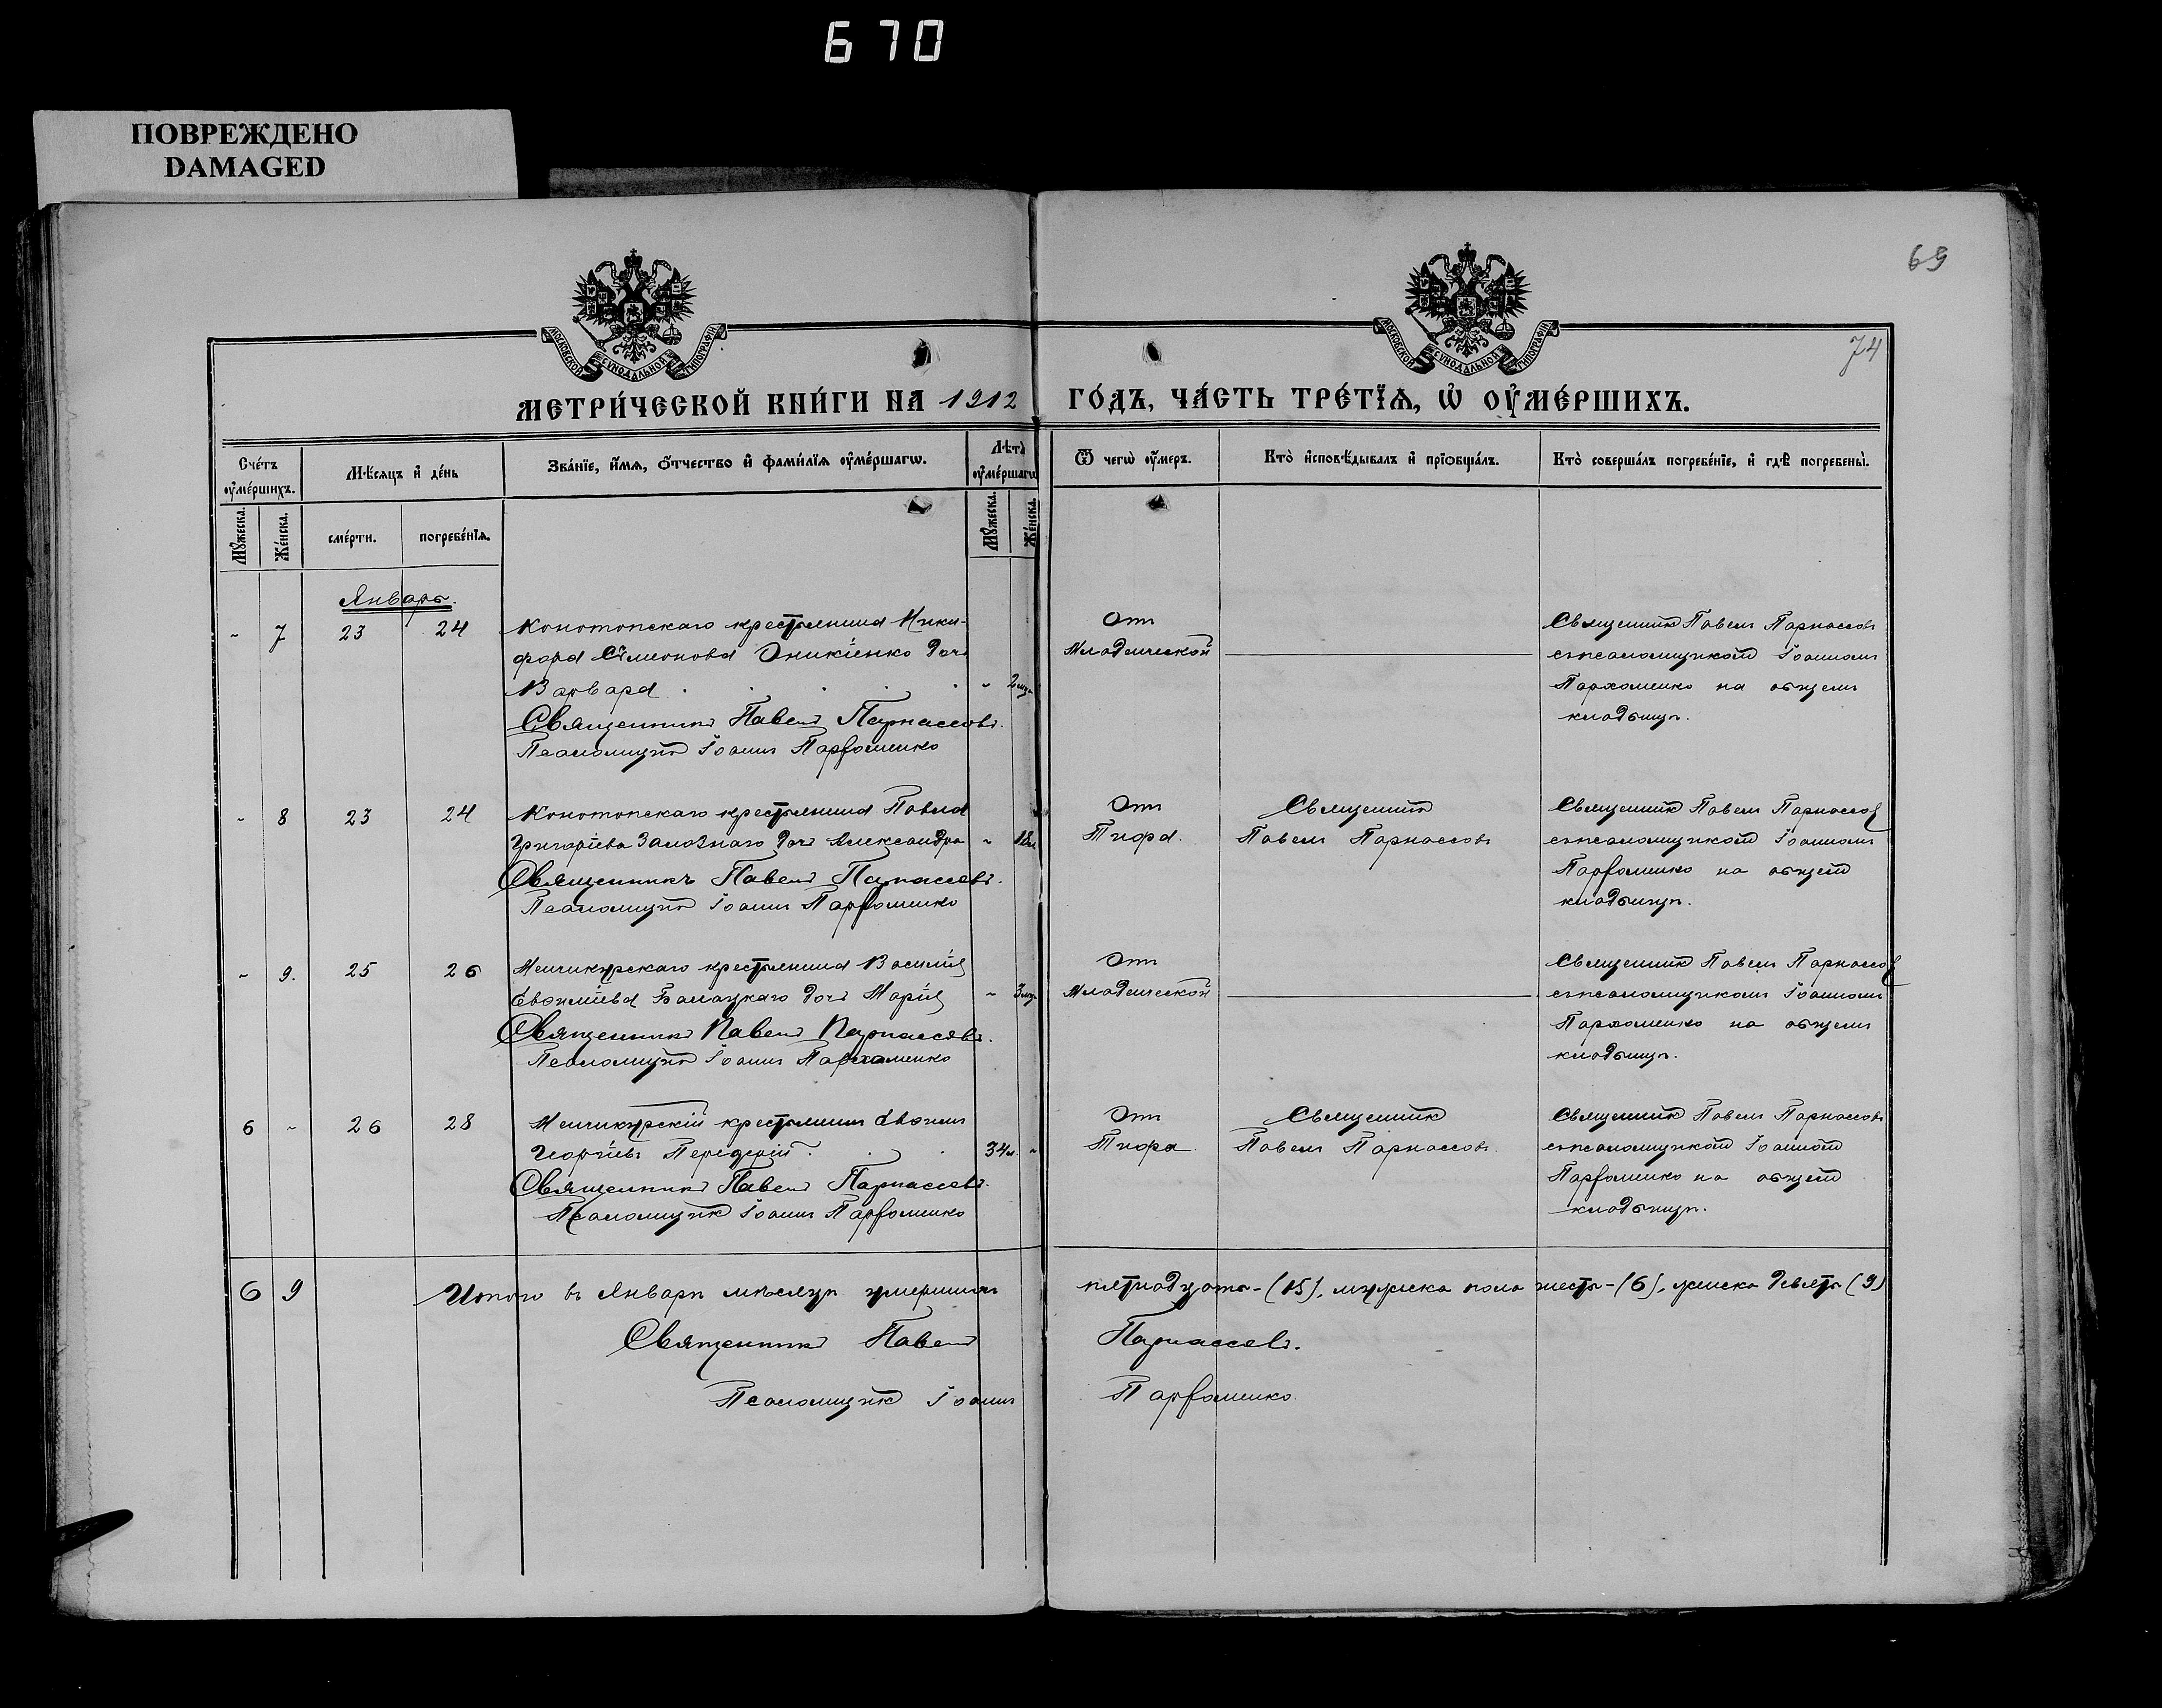 670
ПОВРЕЖДЕНО
DAMAGED
69
74
МОСКОВСКОЙ СѴНОДАЛЬНОЙ ТИПОГРАФІИ
МОСКОВСКОЙ СѴНОДАЛЬНОЙ ТИПОГРАФІИ
МЕТРИ́ЧЕСКОЙ КНИ́ГИ НА 1912 ГО́ДЪ, ЧА́СТЬ ТРЕ́ТЇѦ, Ѡ҆ ОУ҆МЕ́РШИХЪ.
Сче́тъ оу҆ме́ршихъ.
Мѣ́сяцъ и҆ де́нь
Зва́нїе, и҆́мѧ, ѻ҆́тчество и҆ фами́лїѧ оу҆ме́ршагѡ.
Лѣ́та̀ оу҆ме́ршагѡ
Ѿ чегѡ̀ оу҆́меръ.
Кто̀ и҆сповѣ́дывалъ и҆ прїѡбща́лъ.
Кто̀ соверша́лъ погребе́нїе, и҆ гдѣ̀ погребены̀.
Мꙋ́жеска.
Же́нска.
сме́рти.
погребе́нїѧ.
Мꙋ́жеска.
Же́нска.
Январь.
- 7 23 24 Конотопскаго крестьянина Ники-
фора Симеонова Оникіенко дочь
Варвара - 2 мц.
Священникъ Павелъ Парнассовъ.
Псаломщикъ Іоаннъ Парфоменко
Отъ
младенческой
Священникъ Павелъ Парнассовъ
съ псаломщикомъ Іоанномъ
Пархоменко на общемъ
кладбищѣ.
- 8 23 24 Конотопскаго крестьянина Павла
Григоріева Залознаго дочь Александра - 18 л.
Священникъ Павелъ Парнассовъ.
Псаломщикъ Іоаннъ Парфоменко
Отъ
Тифа.
Священникъ
Павелъ Парнассовъ
Священникъ Павелъ Парнассовъ
съ псаломщикомъ Іоанномъ
Парфоменко на общемъ
кладбищѣ.
- 9. 25 26 Менчикурскаго крестьянина Василія
Евѳиміева Балацкаго дочь Марія - 3 мц.
Священникъ Павелъ Парнассовъ.
Псаломщикъ Іоаннъ Пархоменко
Отъ
младенческой
Священникъ Павелъ Парнассовъ
съ псаломщикомъ Іоанномъ
Пархоменко на общемъ
кладбищѣ.
6 - 26 28 Менчикурскій крестьянинъ Евѳимъ
Георгіевъ Передерій 34 л. -
Священникъ Павелъ Парнассовъ.
Псаломщикъ Іоаннъ Парфоменко
Отъ
Тифа
Священникъ
Павелъ Парнассовъ.
Священникъ Павелъ Парнассовъ
съ псаломщикомъ Іоанномъ
Парфоменко на общемъ
кладбищѣ.
6 9 Итого въ Январѣ мѣсяцѣ умершихъ пятнадцать - (15), мужеска пола шесть - (6), женска девять (9)
Священникъ Павелъ Парнассовъ.
Псаломщикъ Іоаннъ Парфоменко.